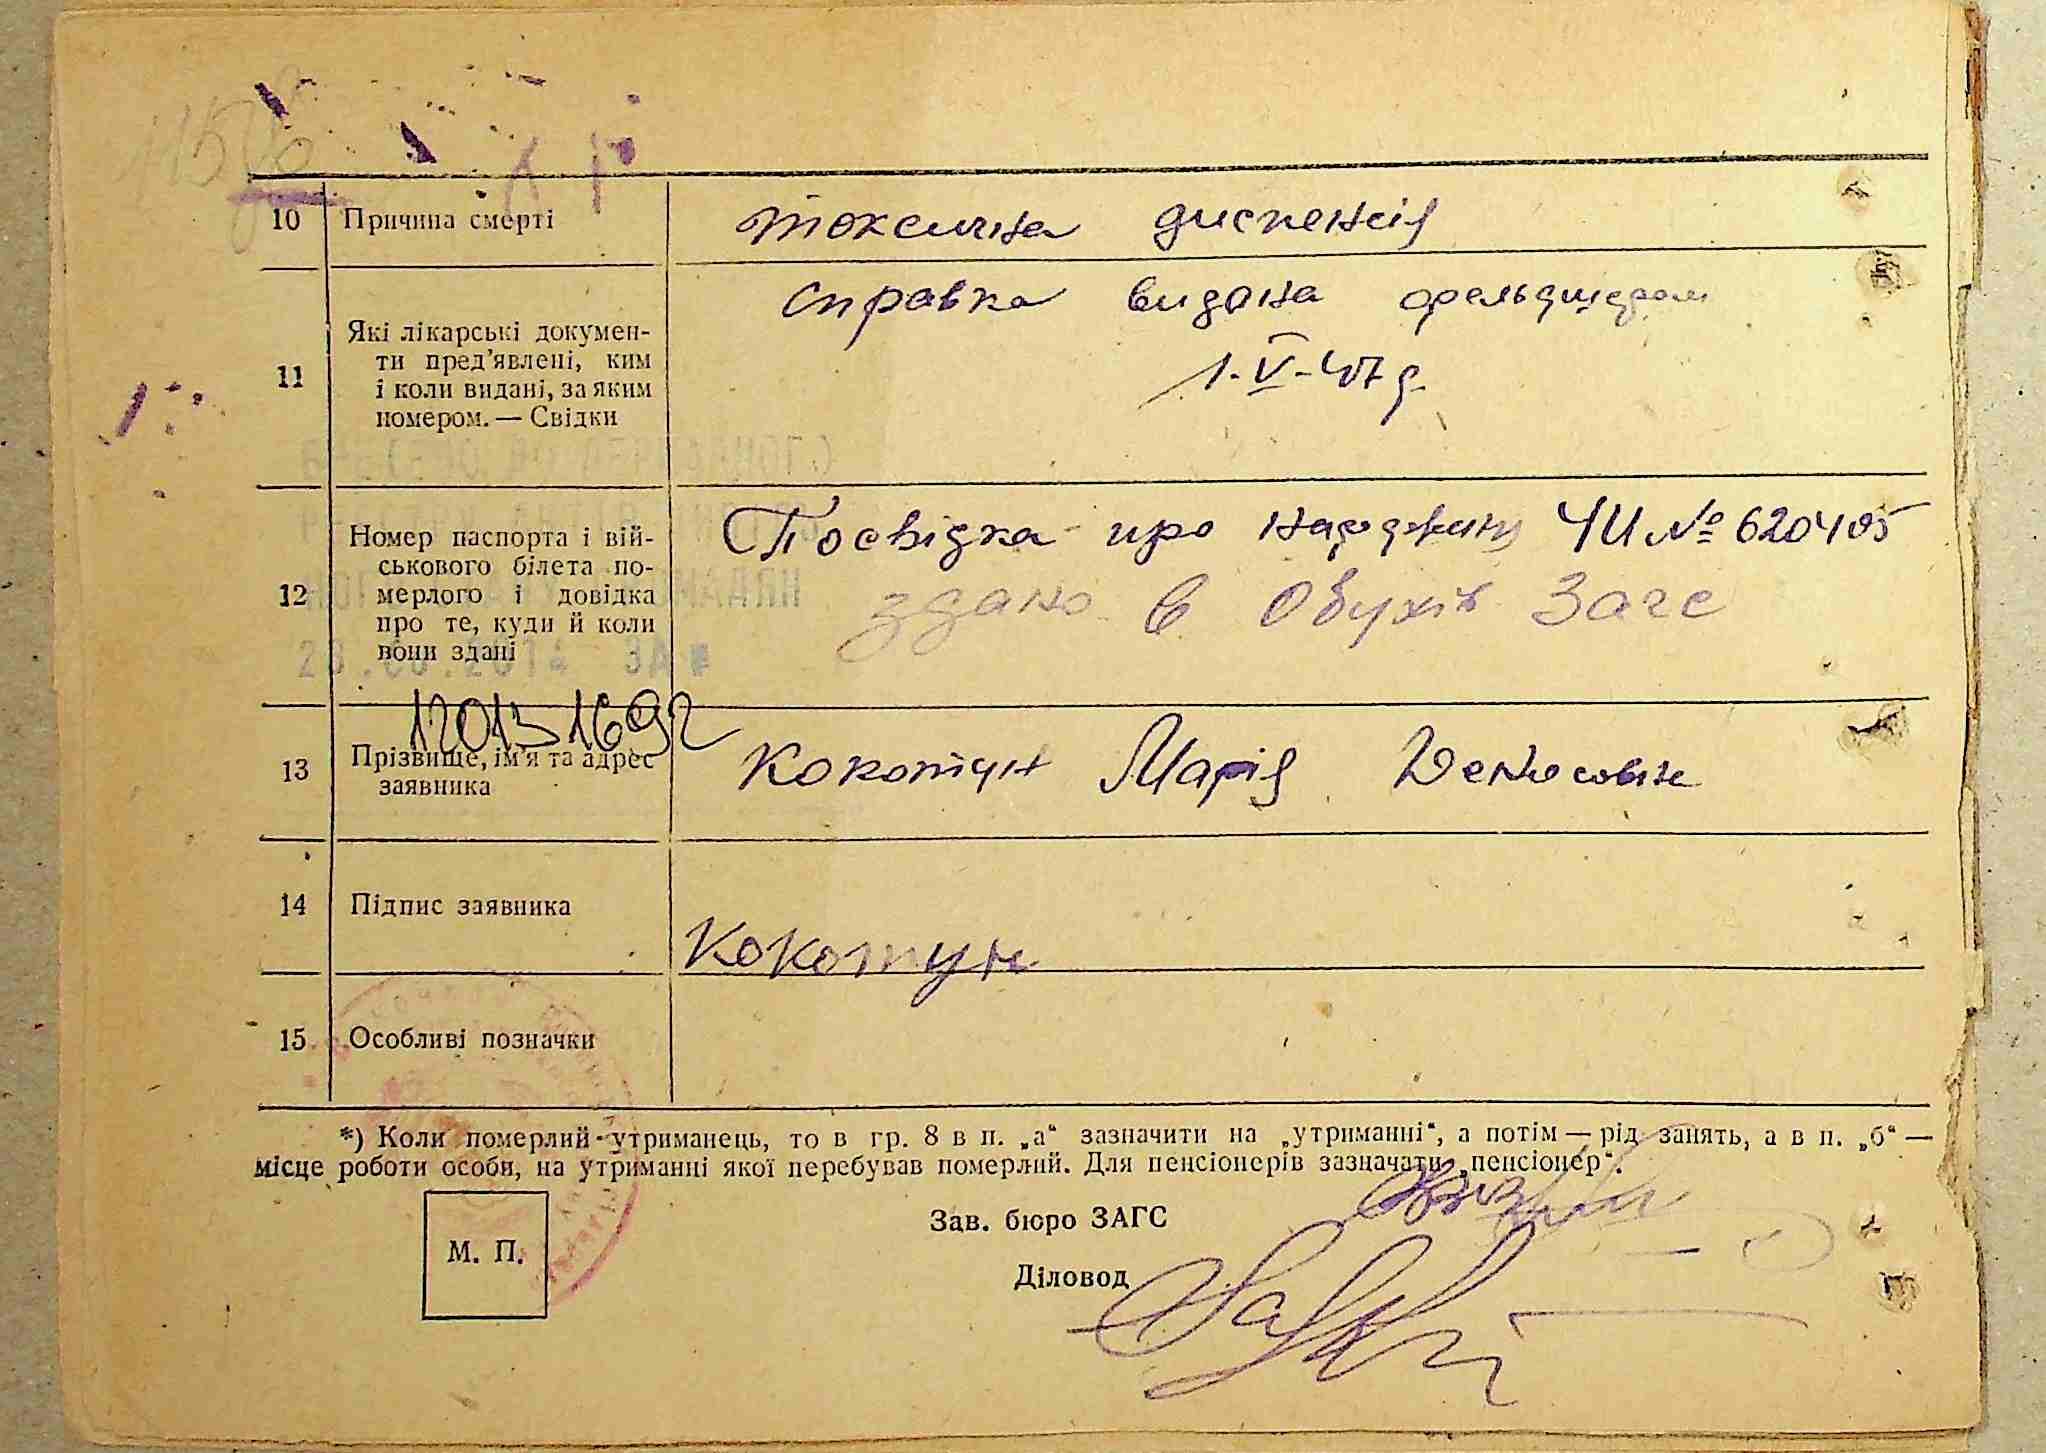 10 Причина смерті токсична диспенсія
11 Які лікарські докумен-
ти пред'явлені, ким
і коли видані, за яким
номером. — Свідки
справка видана фельдшером
1-V-47 р.
12 Номер паспорта і вій-
ськового білета по-
мерлого і довідка
про те, куди й коли
вони здані
Посвідка про народжин ЧИ № 620405
здано в Обухів Загс
120131692
13 Прізвище, ім'я та адрес
заявника
Кокотун Марія Денисовна
14 Підпис заявника
Кокотун
15 Особливі позначки
*) Коли померлий утриманець, то в гр. 8 в п. „а“ зазначити на „утриманні“, а потім — рід занять, а в п. „б“ —
місце роботи особи, на утриманні якої перебував померлий. Для пенсіонерів зазначати „пенсіонер“.
М. П.
Зав. бюро ЗАГС
Діловод